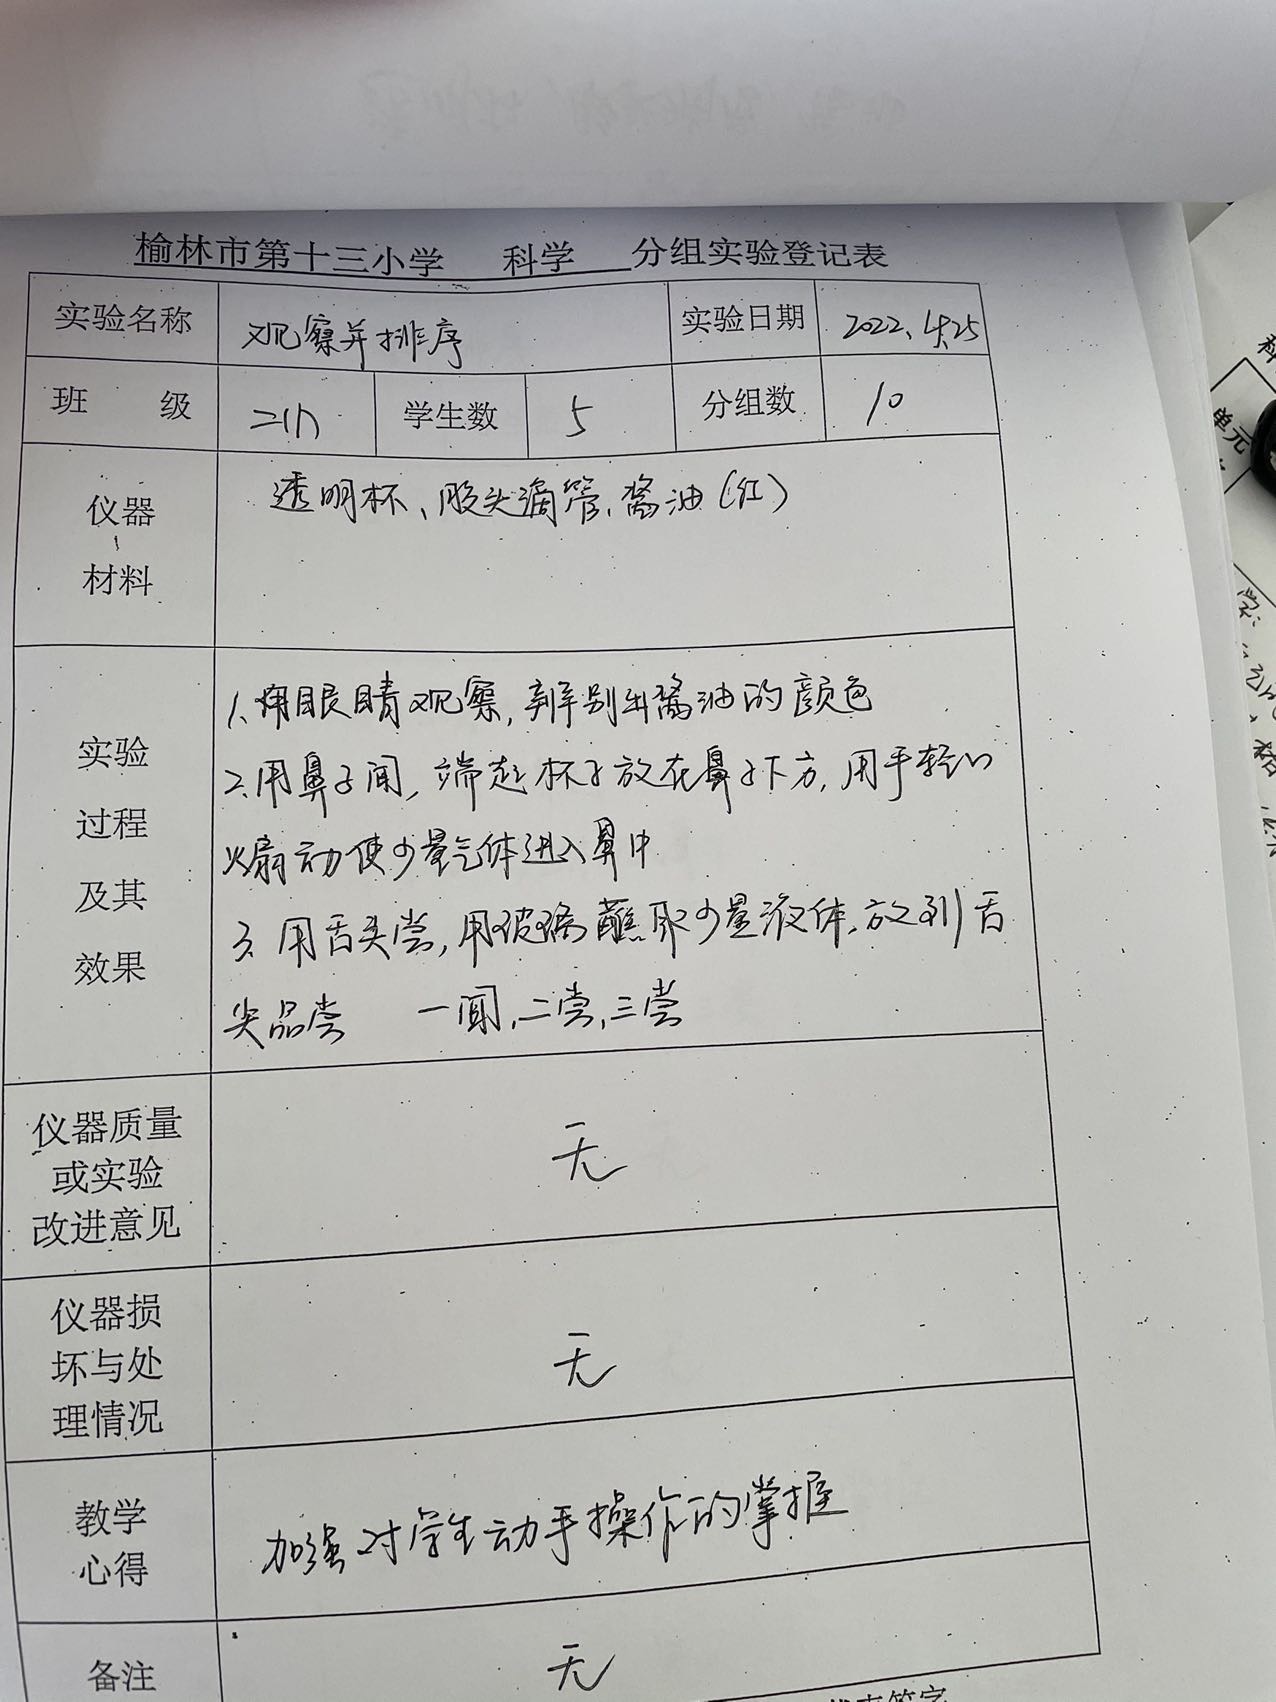 榆林市第十三小学 科学 分组实验登记表
实验名称 观察并排序 实验日期 2022、4、25
班 级 二(1) 学生数 5 分组数 10
仪器 透明杯、胶头滴管、酱油(红)
材料
1、用眼睛观察,辨别出酱油的颜色
实验 2、用鼻子闻,端起杯子放在鼻子下方,用手轻轻
过程 煽动使少量气体进入鼻中
及其 3、用舌头尝,用玻璃蘸取少量液体,放到舌
效果 尖品尝 一闻,二尝,三尝
仪器质量
或实验 无
改进意见
仪器损
坏与处 无
理情况
教学 加强对学生动手操作的掌握
心得
备注 无
签字
单元